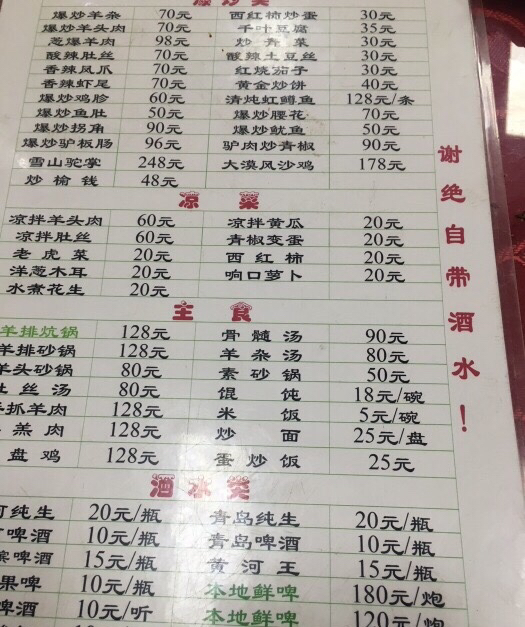 爆炒类
爆炒羊杂 70元 西红柿炒蛋 30元
爆炒羊头肉 70元 千叶豆腐 35元
葱爆羊肉 98元 炒青菜 30元
酸辣肚丝 70元 酸辣土豆丝 30元
香辣凤爪 70元 红烧茄子 30元
香辣虾尾 70元 黄金炒饼 40元
爆炒鸡胗 60元 清炖虹鳟鱼 128元/条
爆炒鱼肚 50元 爆炒腰花 70元
爆炒拐角 90元 爆炒鱿鱼 50元
爆炒驴板肠 96元 驴肉炒青椒 90元
雪山驼掌 248元 大漠风沙鸡 178元
炒榆钱 48元
凉菜
凉拌羊头肉 60元 凉拌黄瓜 20元
凉拌肚丝 60元 青椒变蛋 20元
老虎菜 20元 西红柿 20元
洋葱木耳 20元 响口萝卜 20元
水煮花生 20元
主食
羊排炕锅 128元 骨髓汤 90元
羊排砂锅 128元 羊杂汤 80元
羊头砂锅 80元 素砂锅 50元
肚丝汤 80元 馄饨 18元/碗
手抓羊肉 128元 米饭 5元/碗
羊羔肉 128元 炒面 25元/盘
盘鸡 128元 蛋炒饭 25元
酒水类
纯生 20元/瓶 青岛纯生 20元/瓶
啤酒 10元/瓶 青岛啤酒 10元/瓶
啤酒 15元/瓶 黄河王 15元/瓶
果啤 10元/瓶 本地鲜啤 180元/炮
啤酒 10元/听 本地鲜啤 120元/炮
谢绝自带酒水！